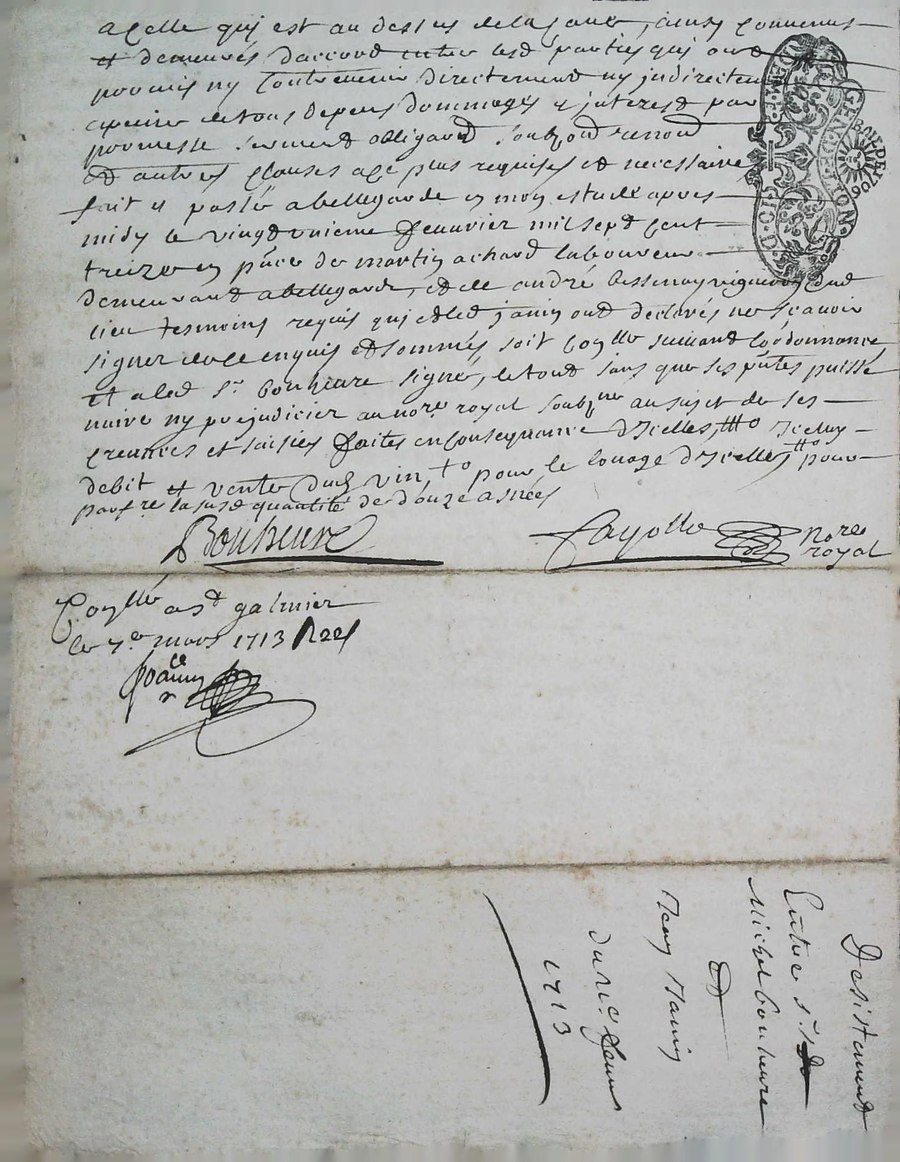 a celle quj est au dessus de la
et demeurés daccord entre lesd parties quj ont
promis ny Contrevenir directement ny judirectem
apeine de tous depens dommages & jnterest par
promesse serment obligaōn soubōn renoōn
et autres clauses a ce plus requises et necessaire
fait & passé a bellegarde en mon estude apres
midy le vingt unieme Jenvier mil sept cent
treize en pñce de martin achard laboureur
demeurant a bellegarde, et de andré bessenay vigneron dud
lieu tesmoins requis quj et led janin ont declarés ne sçavoir
signer de ce enquis et sommés soit Coyllé suivant Lordonnance
et a led Sr bonheure signé, le tout sans que ses pñtes puisse
nuire ny prejudicier au nore royal soubzne au sujet de ses
creances et saisies faites en consequance d'Icelles,
debit et vente dud vin pour le louage d'Icelles pour
parfre la susd quantité de douze asnées
Bonheure Cayolle Nore royal
Coyllé a St galmier
le 7e mars 1713 R 22s
GENERATION
BOIT DE 1706
Desistement
Entre sr
Michel bonheure
Et
Jean Janin
du 21e Janv
1713